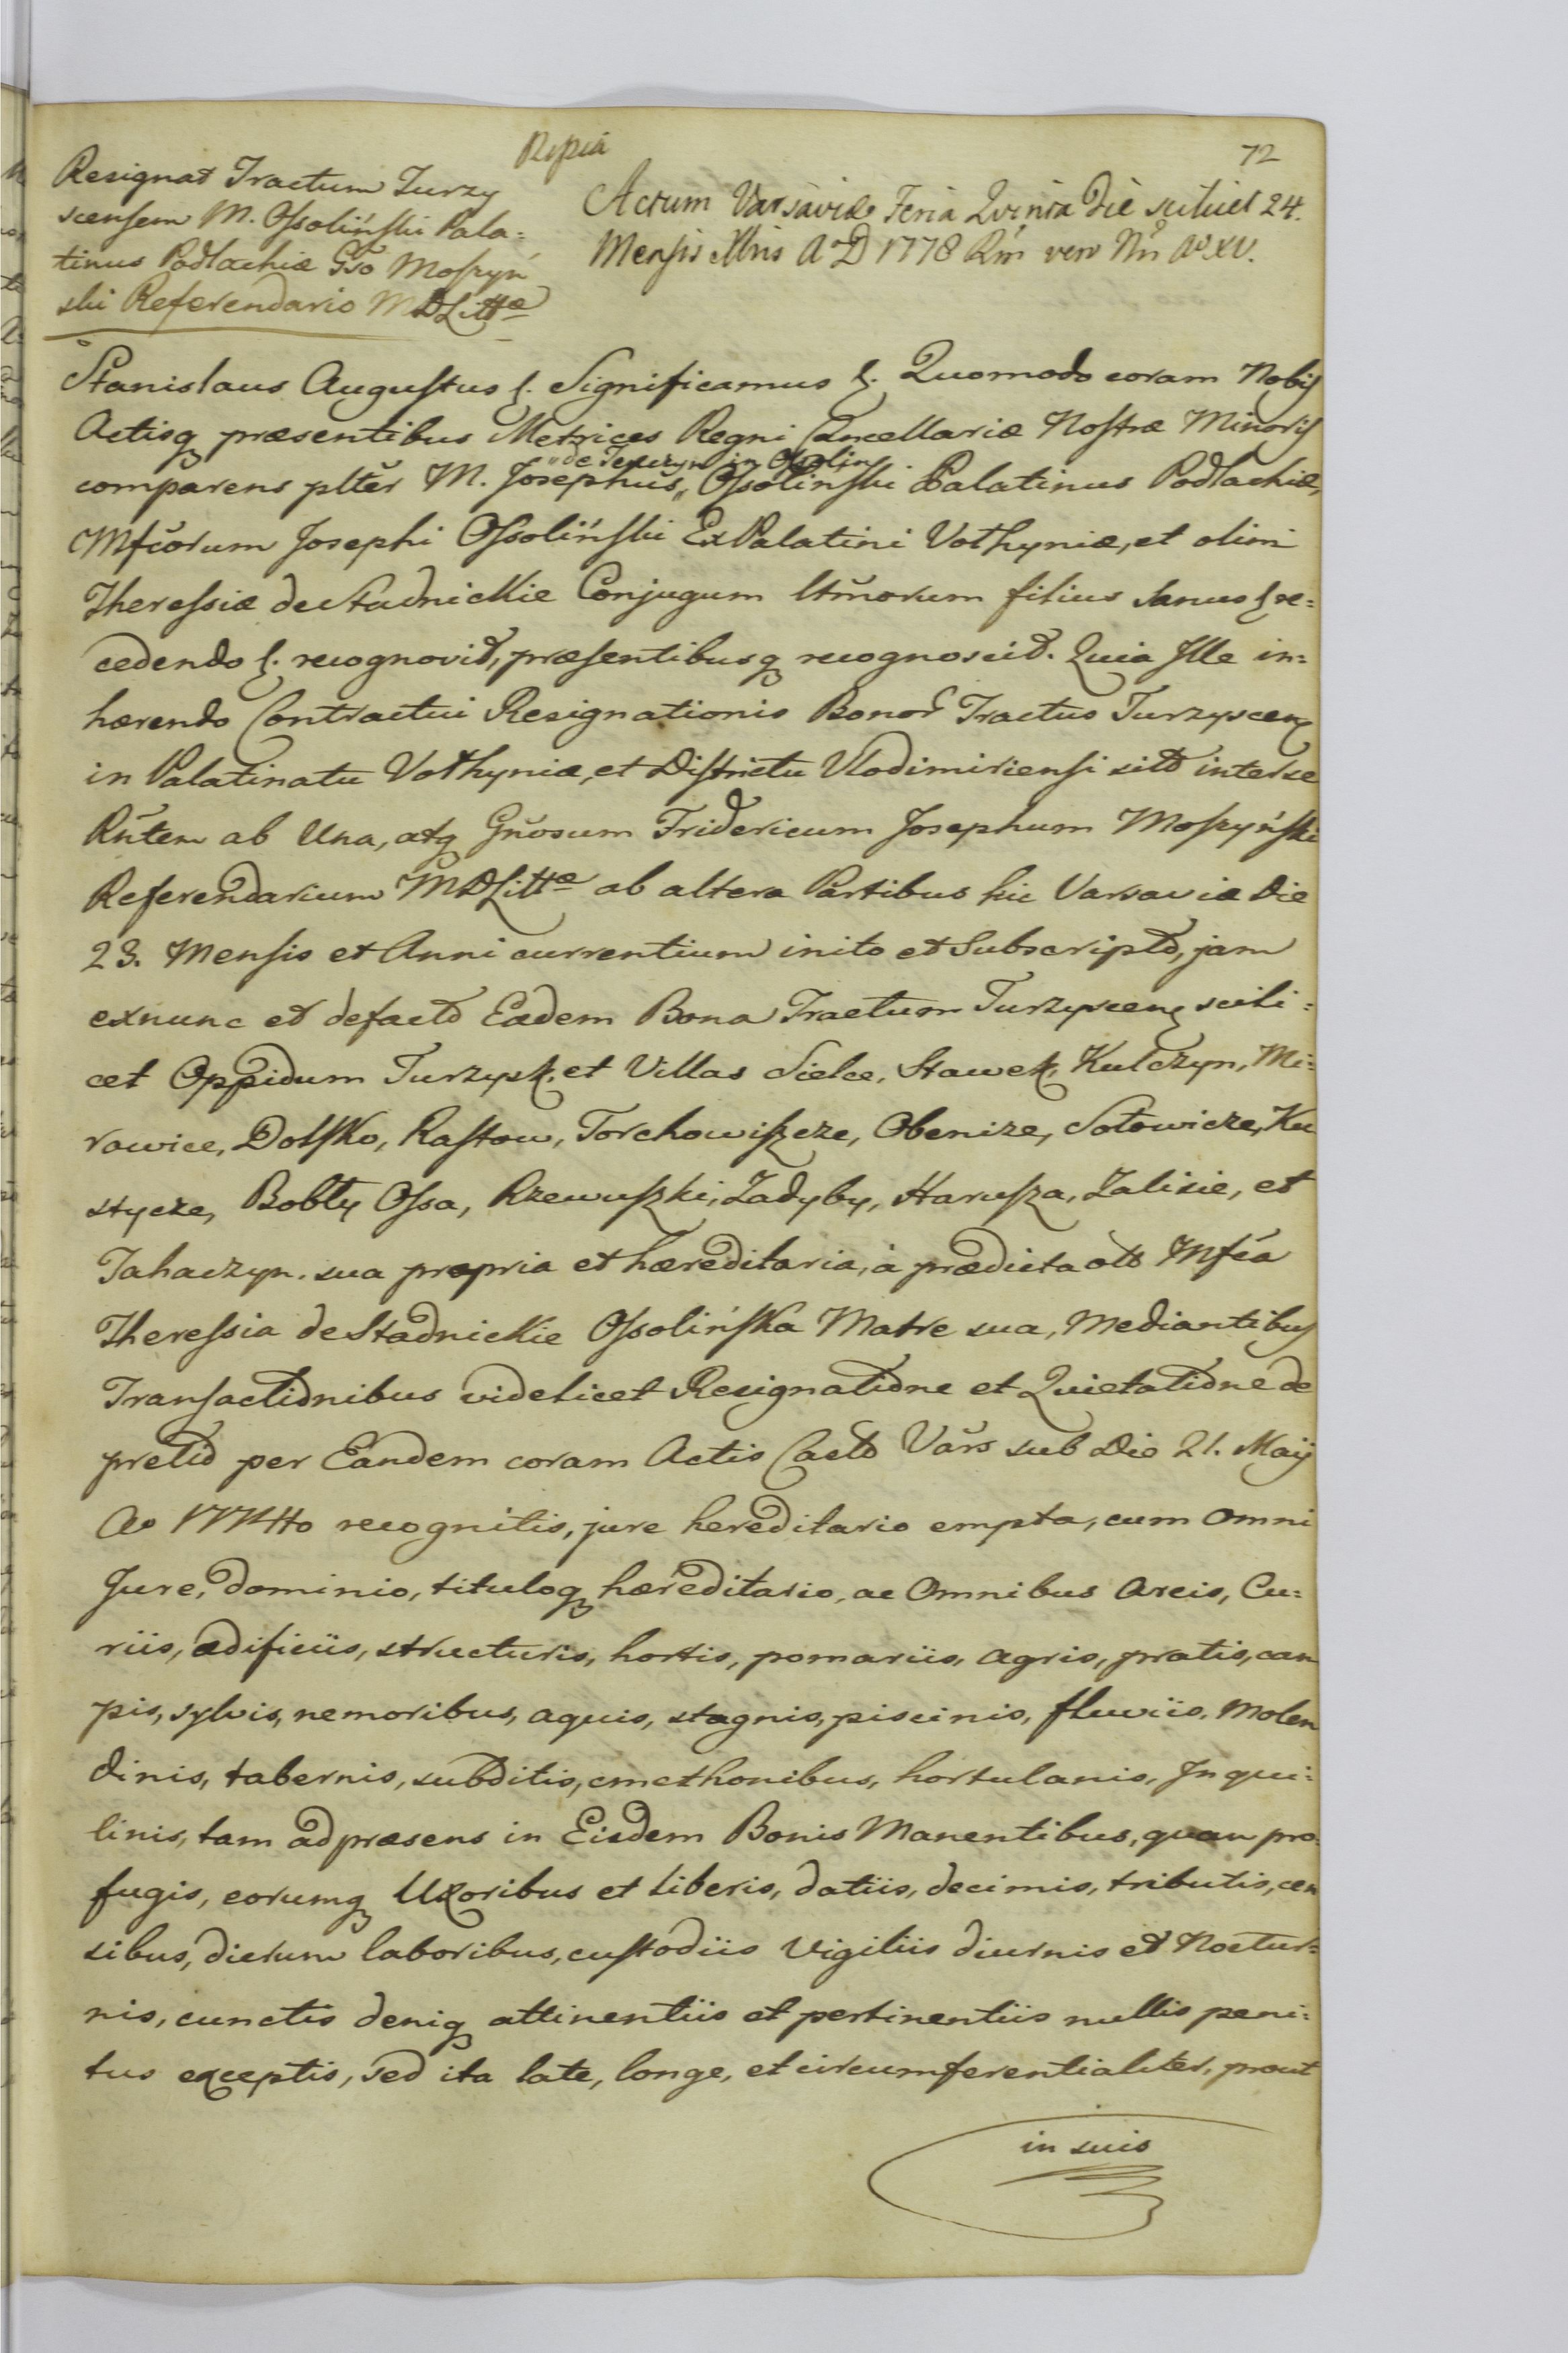 72
Resignat Tractum Turzy
scensem M. Ossoliński Pala=
tinus Podlachiæ Gso Moszyń
ski Referendario MDLittæ
Actum Varsaviæ Feria Qvinta Die scilicet 24.
Mensis Xbris A D 1778 Rni vero Nri Ao XV.
Stanislaus Augustus &. Significamus &. Quomodo coram Nobis
Actisq præsentibus Metrices Regni Cancellariæ Nostræ Minoris
"de Tenczyn in Ossolin
comparens plter M. Josephus,, Ossoliński Palatinus Podlachiæ,
Mfcorum Josephi Ossoliński ExPalatini Volhyniæ, et olim
Theressiæ de Stadnickie Conjugum ltmorum filius Sanus & re=
cedendo &. recognovit, præsentibusq recognoscit. Quia Ille in=
hærendo Contractui Resignationis Bonor Tractus Turzyscen
in Palatinatu Volhyniæ, et Districtu Vlodimiriensi sito inter se
Rntem ab Una, atq Gnosum Fridericum Josephum Moszyński
Referendarium MDLittæ ab altera Partibus hic Varsaviæ Die
23. Mensis et Anni currentium inito et Subscripto, jam
exnunc et defacto Eadem Bona Tractum Turzyscen scili=
cet Oppidum Turzysk, et Villas Sielce, Stawek, Kulczyn, Mi=
rowice, Dolsko, Rastow, Torchowiszcze, Obenize, Sołowicze, Ku
stycze, Bobły Ossa, Rzewuszki, Zadyby, Harusza, Zalisie, et
Tahaczyn. sua propria et hæreditaria, à prædicta olt Mfca
Theressia de Stadnickie Ossolińska Matre sua, Mediantibus
Transactionibus videlicet Resignatione et Quietatione de
pretio per Eandem coram Actis Casto Vars sub Die 21. Maij
Ao 1774tto recognitis, jure hereditario empta, cum omni
Jure, dominio, tituloq hæreditario, ac Omnibus Areis, Cu=
riis, ædificiis, structuris, hortis, pomariis, agris, pratis, cam
pis, sylvis, nemoribus, aquis, stagnis, piscinis, fluviis, Molen
dinis, tabernis, subditis, cmethonibus, hortulanis, Inqui=
linis, tam ad præsens in Eisdem Bonis Manentibus, quam pro=
fugis, eorumq Uxoribus et liberis, datiis, decimis, tributis, cen
sibus, dierum laboribus, custodiis vigiliis diurnis et Noctur=
nis, cunctis deniq attinentiis et pertinentiis nullis peni=
tus exceptis, sed ita late, longe, et circumferentialiter, prout
in suis